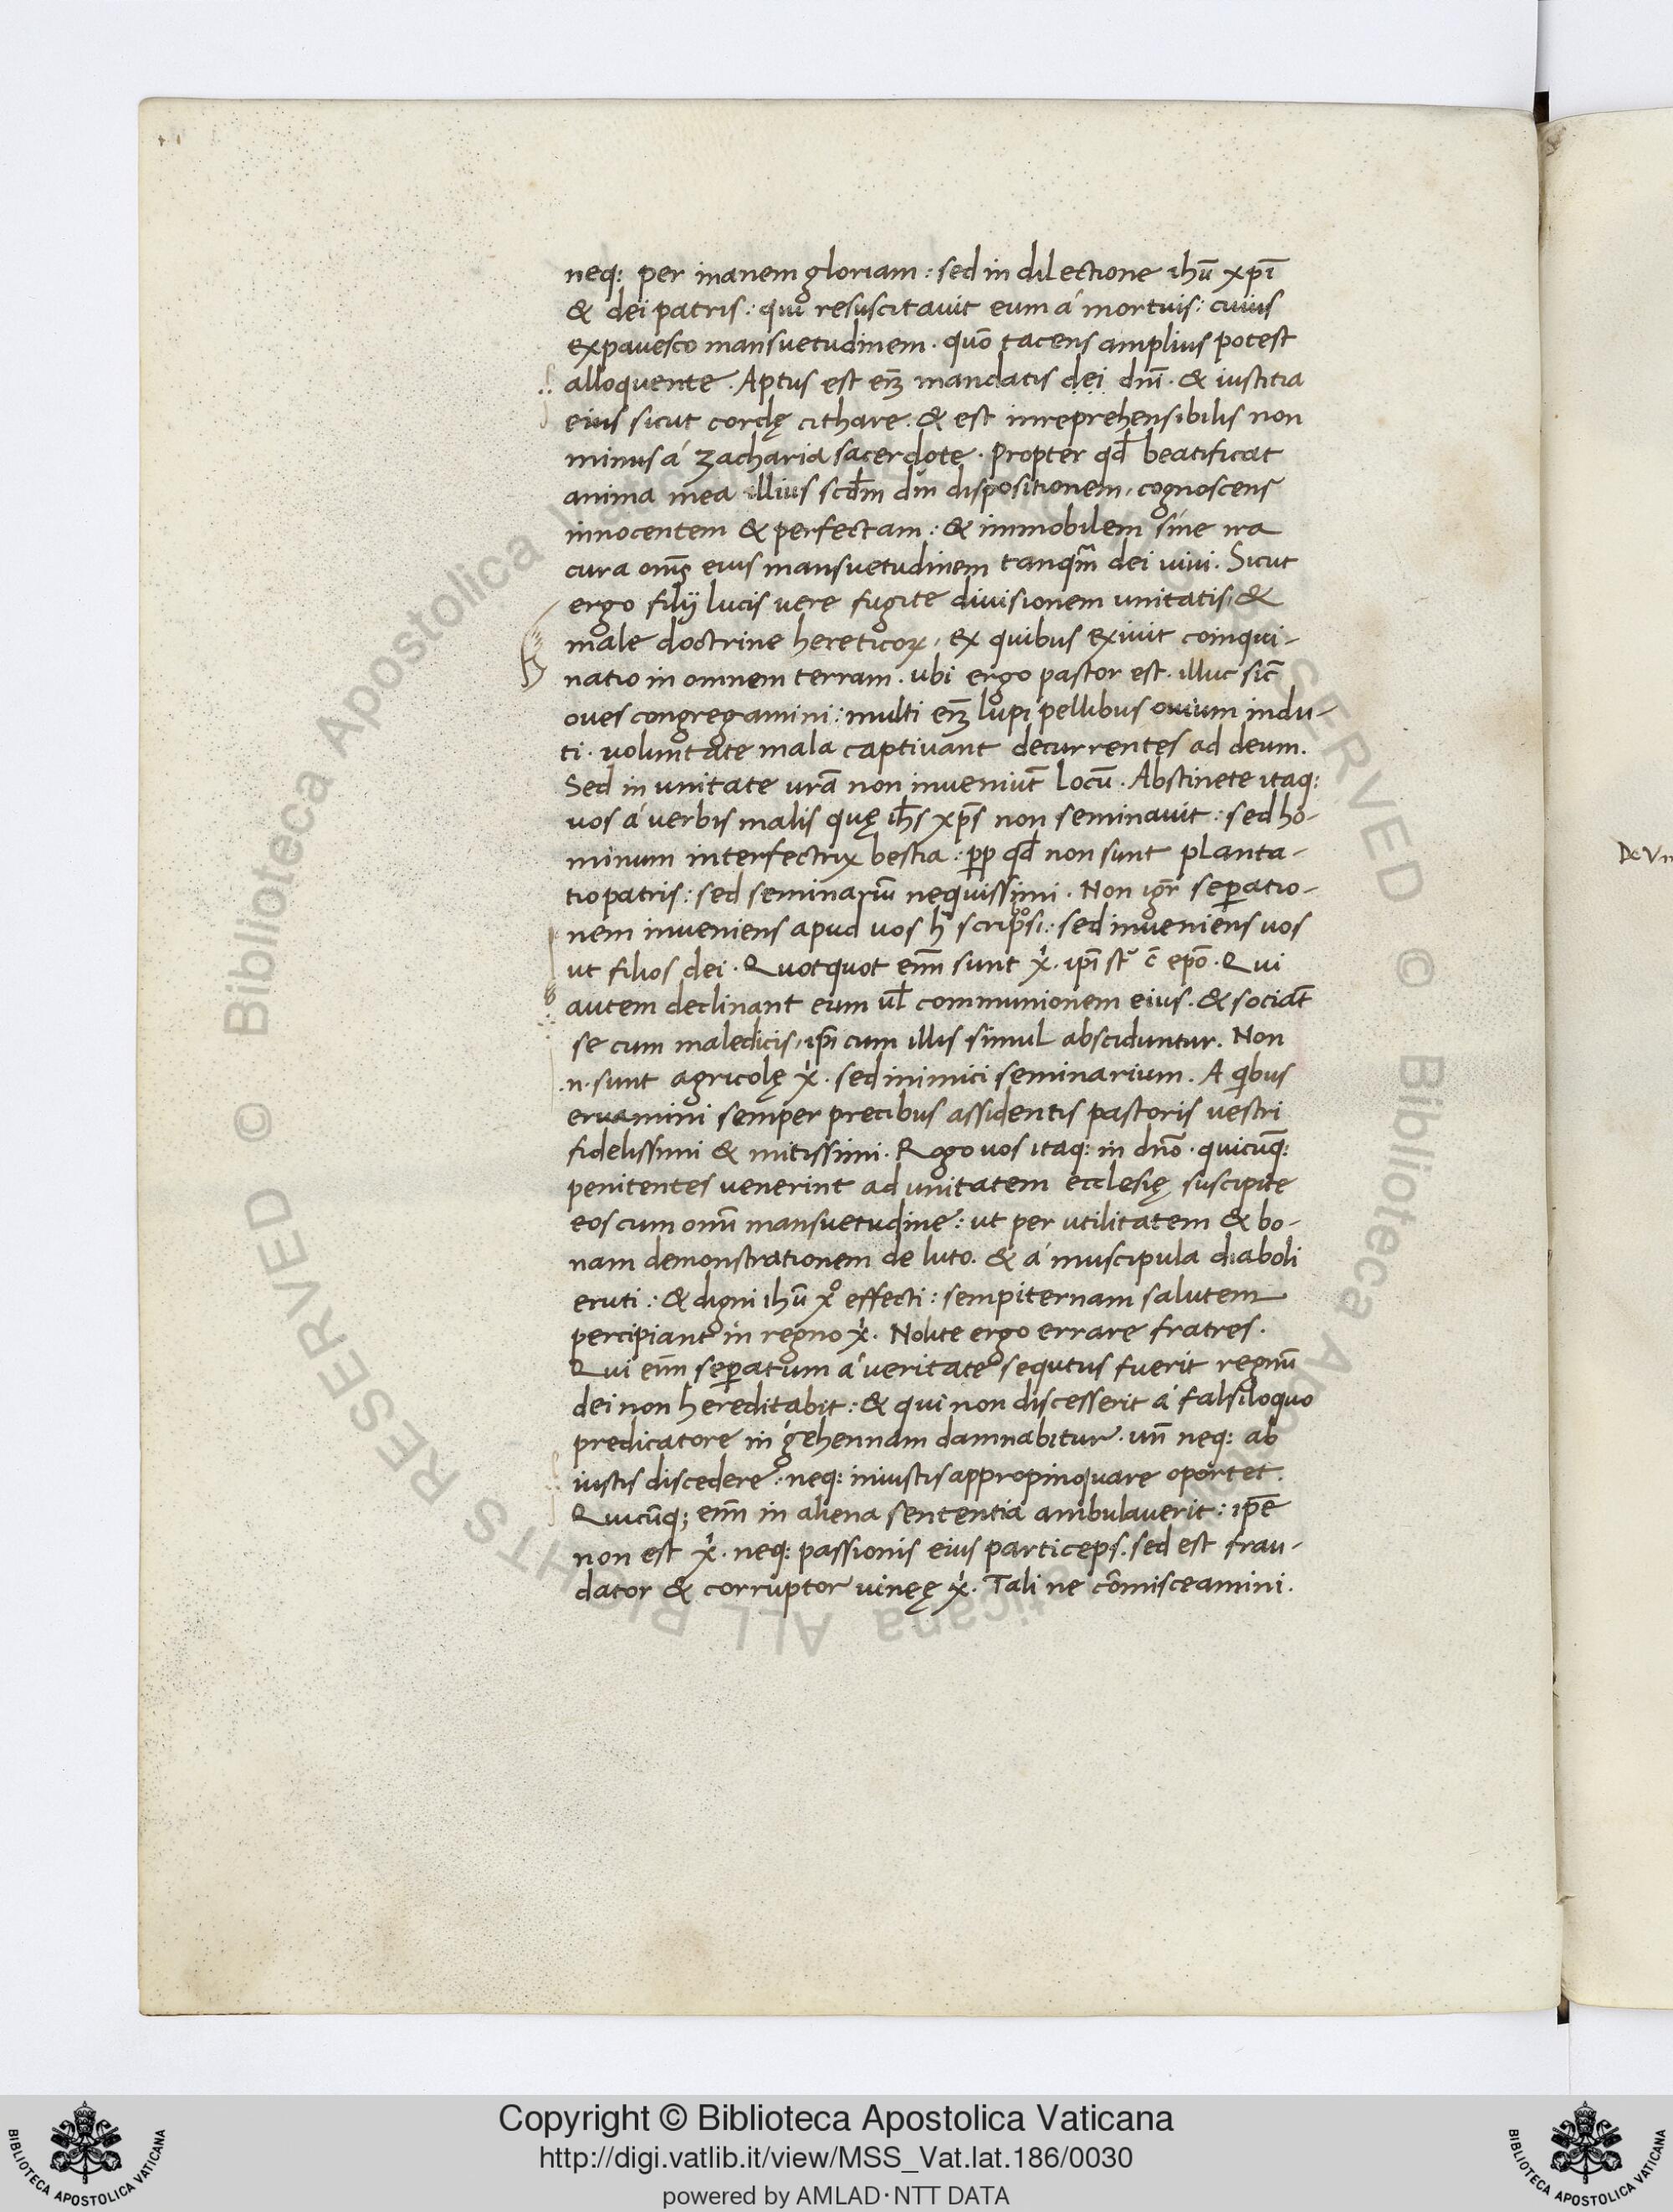 neq: per inanem gloriam : sed in dilectione ihū xpī
& dei patris : qui resuscitavit eum á mortuis : cuius
expavesco mansuetudinem . quō tacens amplius potest
alloquente . Aptus est enʒ mandatis dei dnī . & iustitia
eius sicut cordę cithare . & est inreprehensibilis non
minus á zacharia sacerdote . Propter qđ beatificat
anima mea illius scđm dīn dispositionem , cognoscens
innocentem & perfectam : & immobilem sine ira
cura omīs eius mansuetudinem tanqm̄ dei uiui . Sicut
ergo filij lucis vere fugite diuisionem unitatis , &
male doctrine hereticoꝝ , ex quibus exivit coinqui-
natio in omnem terram . ubi ergo pastor est . illuc sic̄
oues congregamini : multi enʒ lupi pellibus ouium indu-
ti . voluntate mala captivant decurrentes ad deum .
Sed in unitate urā non inveniut̄ locū . Abstinete itaq:
uos á verbis malis quę ih̄s xp̄s non seminavit : sed ho-
minum interfectrix bestia : pp̄ qđ non sunt planta-
tio patris : sed seminariū nequissimi . Non igr̄ sepatio-
nem inveniens apud uos h̄ scripsi : sed inveniens uos
ut filios dei . Quotquot enī sunt x̓ . ipī st̄ c̄ epō . Qui
autem declinant eum ul̄ communionem eius . & sociat̄
se cum maledicis , ipī cum illis simul absciduntur . Non
.n. sunt agricolę x̓ . sed inimici seminarium . A qibus
eruamini semper precibus assidentis pastoris vestri
fidelissimi & mitissimi . Rogo uos itaq: in dnō . quicūq:
penitentes uenerint ad unitatem ecclesię suscipite
eos cum omī mansuetudine : ut per utilitatem & bo-
nam demonstrationem de luto . & á muscipula diaboli
eruti : & digni ihū x̊ effecti : sempiternam salutem
percipiant in regno x̓ . Nolite ergo errare fratres .
Qui enī sepatum á veritate sequtus fuerit regnū
dei non hereditabit : & qui non discesserit á falsiloquo
predicatore in gehennam damnabitur . un̄ neq: ab
iustis discedere . neq: iniustis appropinquare oportet .
Quicūq; enī in aliena sententia ambulaverit : ipē
non est x̓ . neq: passionis eius particeps . sed est frau-
dator & corruptor uineę x̓ . Tali ne cōmisceamini .
De Vn
© Biblioteca Apostolica Vaticana ALL RIGHTS RESERVED
Copyright © Biblioteca Apostolica Vaticana
http://digi.vatlib.it/view/MSS_Vat.lat.186/0030
powered by AMLAD·NTT DATA
BIBLIOTECA APOSTOLICA VATICANA
BIBLIOTECA APOSTOLICA VATICANA